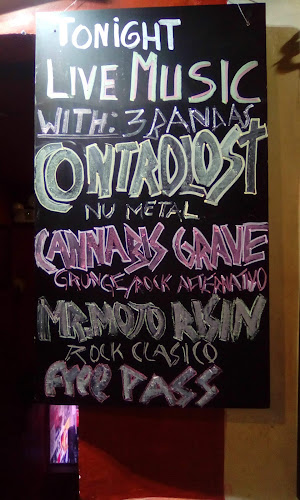 TONIGHT
LIVE MUSIC
WITH: 3 BANDAS
CONTROLOST
NU METAL
CANNABIS GRAVE
GRUNGE/ROCK ALTERNATIVO
MR. MOJO RISIN
ROCK CLASICO
FREE PASS